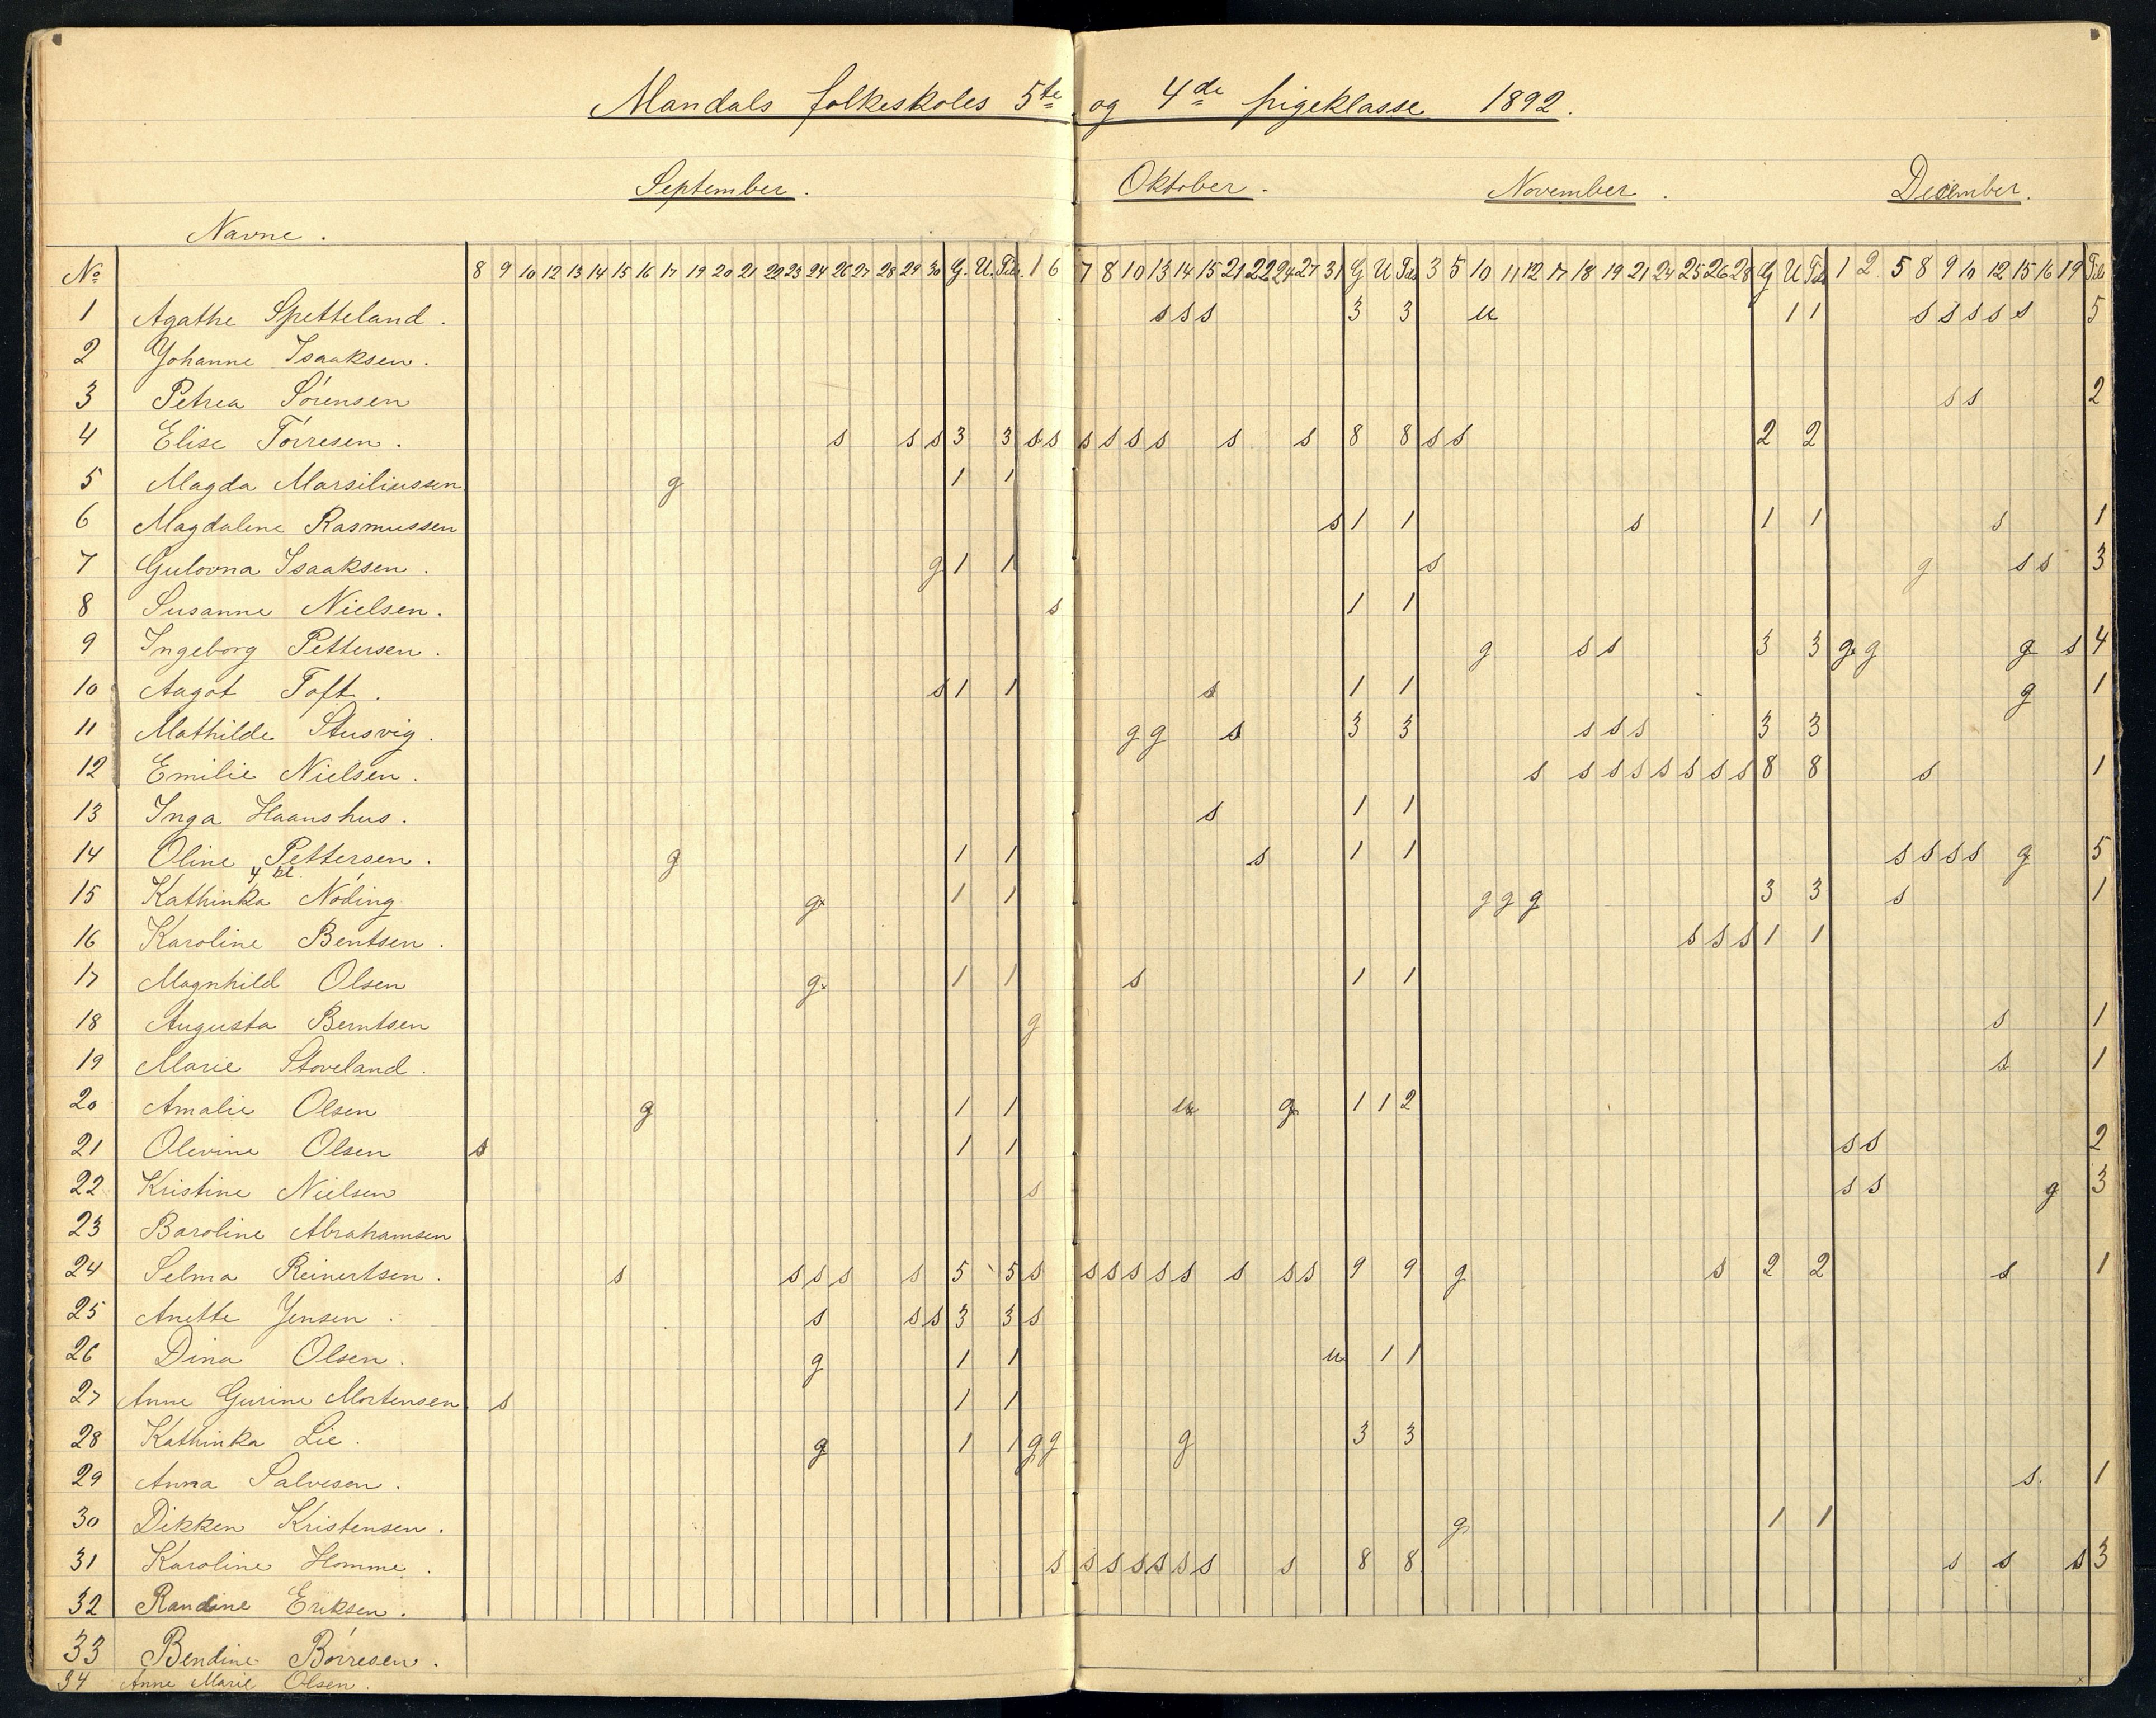 Mandals folkeskoles 5te og 4de pigeklasse 1892.
September. Oktober. November. December.
Navne.
No 8 9 10 12 13 14 15 16 17 19 20 21 22 23 24 26 27 28 29 30 G. U. Tils. 1 6 7 8 10 13 14 15 21 22 24 27 31 G U Tils 3 5 10 11 12 17 18 19 21 24 25 26 28 G U Tils 1 2 5 8 9 10 12 15 16 19 Tils
1 Agathe Spetteland. s s s 3 3 u 1 1 s s s s s 5
2 Johanne Isaaksen.
3 Petrea Sörensen s s 2
4 Elise Törresen. s s s 3 3 s s s s s s s s 8 8 s s 2 2
5 Magda Marsiliussen g 1 1
6 Magdalene Rasmussen s 1 1 s 1 1 s 1
7 Gulovna Isaaksen. g 1 1 s g s s 3
8 Susanne Nielsen. s 1 1
9 Ingeborg Pettersen. g s s 3 3 g g g s 4
10 Aagot Toft. s 1 1 s 1 1 g 1
11 Mathilde Stusvig. g g s 3 3 s s s 3 3
12 Emilie Nielsen. s s s s s s s s 8 8 s 1
13 Inga Haanshus. s 1 1
14 Oline Pettersen. g 1 1 s 1 1 s s s s g 5
4 kl.
15 Kathinka Nöding g 1 1 g g g 3 3 s 1
16 Karoline Bentsen. s s s 1 1
17 Magnhild Olsen g 1 1 s 1 1
18 Augusta Berntsen g s 1
19 Marie Stoveland. s 1
20 Amalie Olsen g 1 1 u g 1 1 2
21 Olevine Olsen s 1 1 s s 2
22 Kristine Nielsen s s s g 3
23 Baroline Abrahamsen
24 Selma Reinertsen. s s s s s 5 5 s s s s s s s s s 9 9 g s 2 2 s 1
25 Anette Jensen. s s s 3 3 s
26 Dina Olsen. g 1 1 u 1 1
27 Anne Gurine Mortensen s 1 1
28 Kathinka Lie. g 1 1 g g g 3 3
29 Anna Salvesen. s. 1
30 Dikken Kristensen. g 1 1
31 Karoline Homme. s s s s s s s s 8 8 s s s 3
32 Randine Eriksen.
33 Bendine Börresen.
34 Anne Marie Olsen.